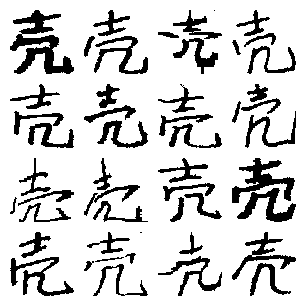 壳壳壳壳
壳壳壳壳
壳壳壳壳
壳壳壳壳